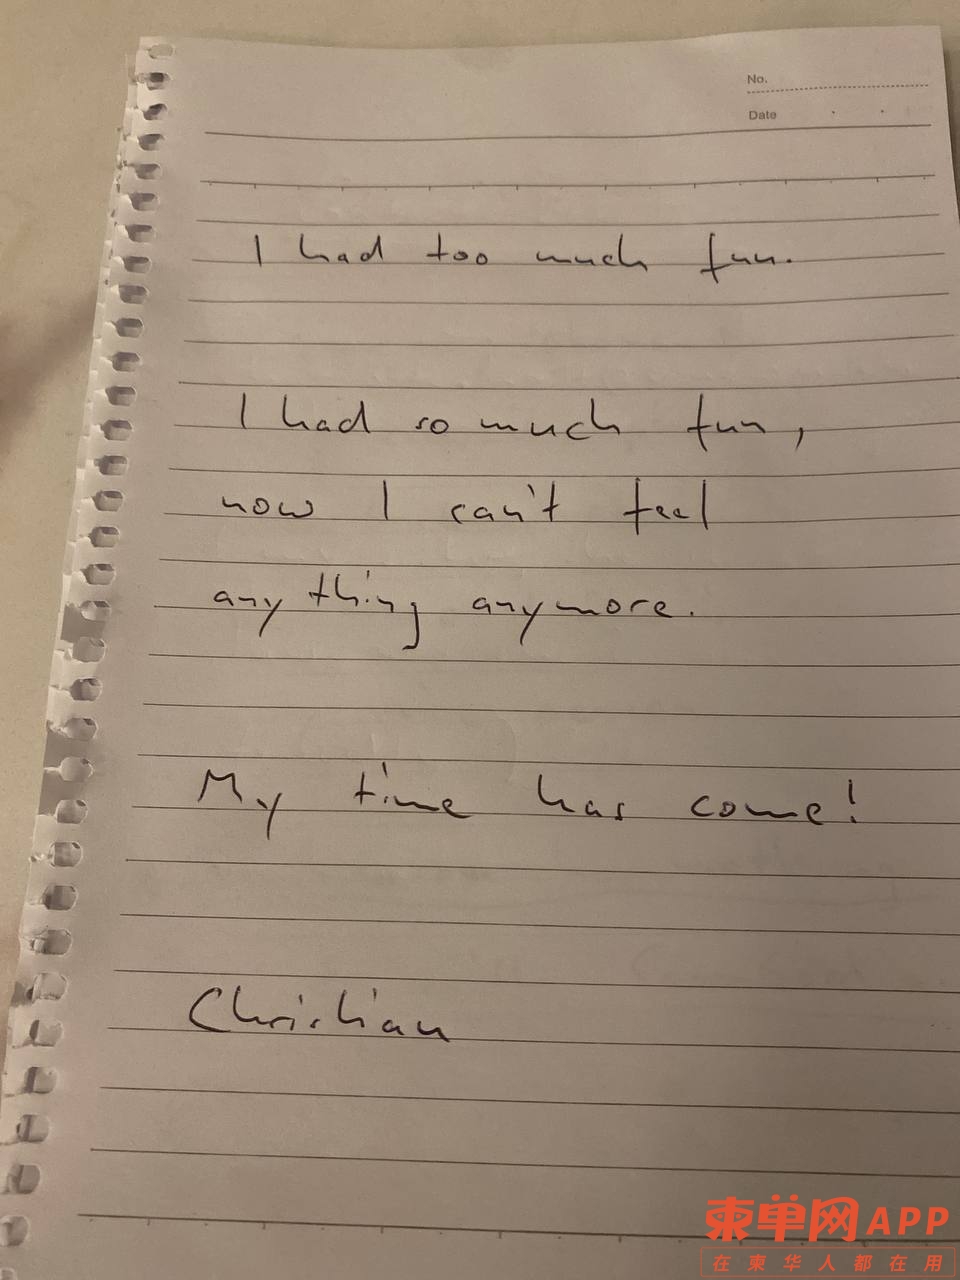 No.
Date
I had too much fun.
I had so much fun,
now I can't feel
anything anymore.
My time has come!
Christian
柬单网APP
在柬华人都在用